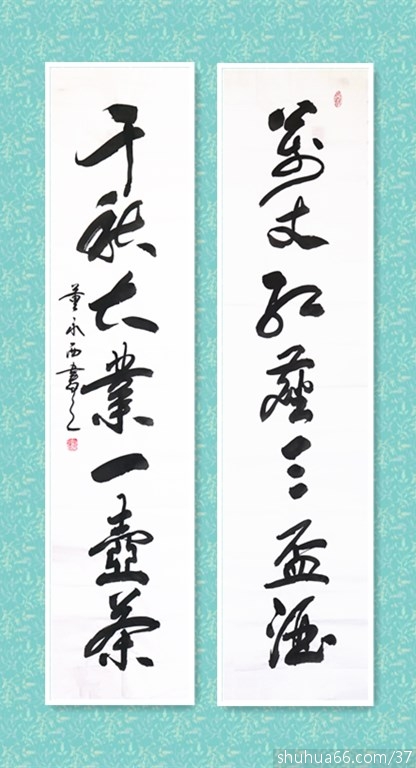 萬丈紅塵三盃酒
千秋大業一壺茶
董永西書之
shuhua66.com/37